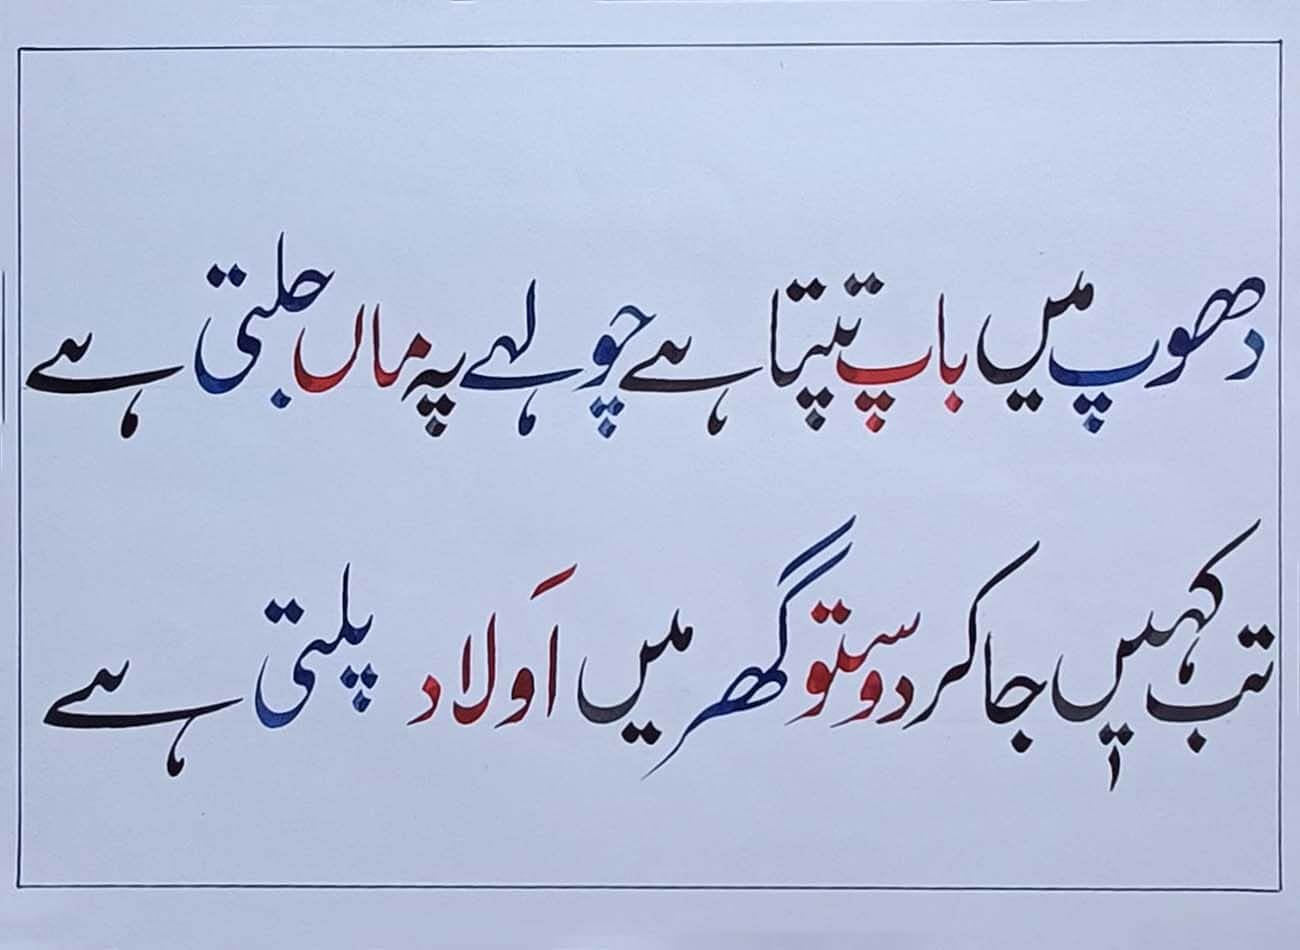 دھوپ میں باپ تپتا ہے چولہے پہ ماں جلتی ہے
تب کہیں جا کر دوستو گھر میں اَولاد پلتی ہے